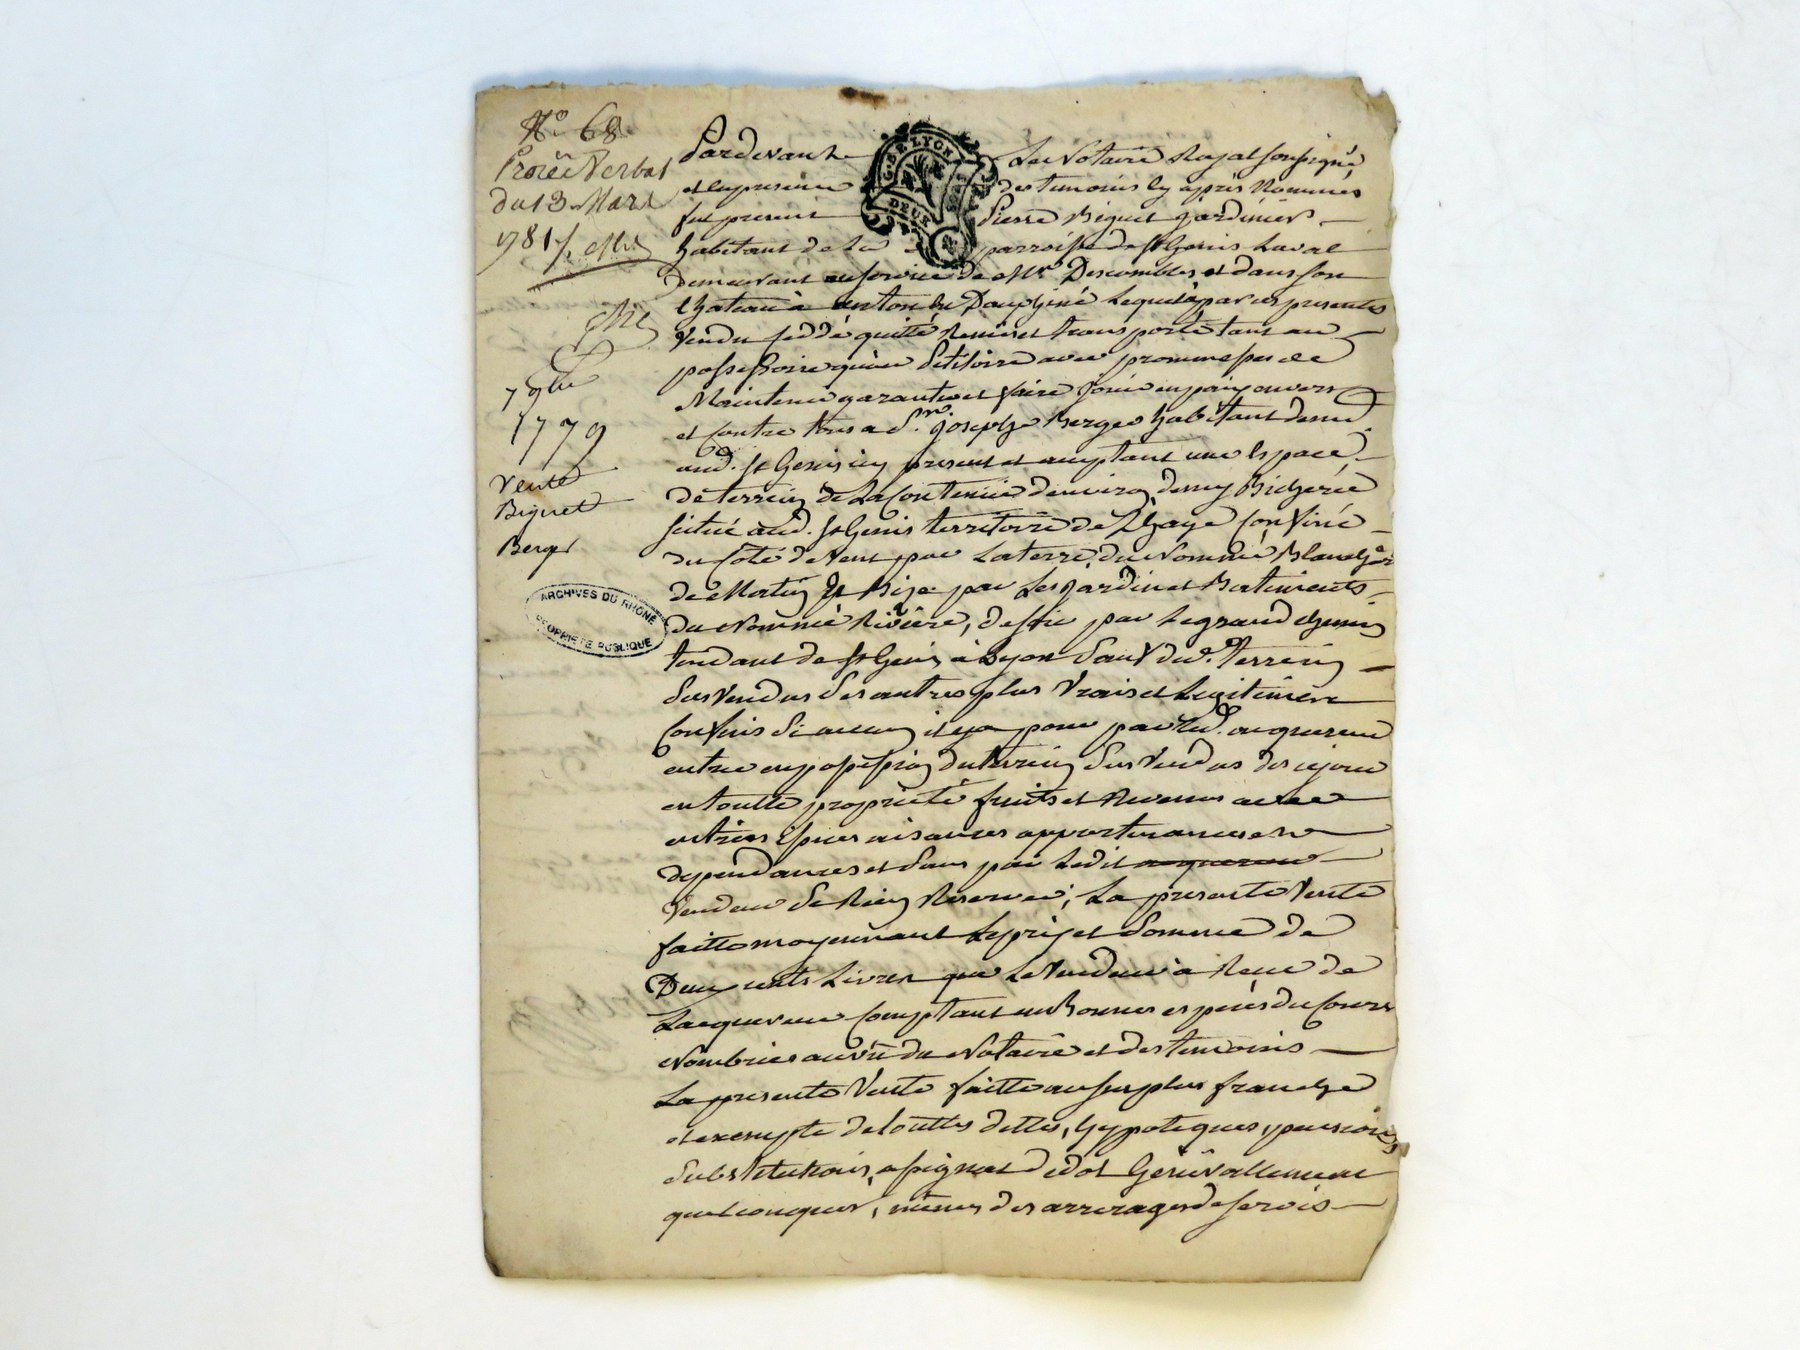 N° 68
Procès Verbal
du 13 Mars
1781
7 9bre
1779
Vente
Biguet
Berger
ARCHIVES DU RHÔNE
PROPRIÉTÉ PUBLIQUE
G. DE LYON
DEUX SOLS
Pardevant Le Notaire Royal soussigné
et en presence des temoins cy après Nommés
fut present Pierre Biguet jardinier
habitant de la parroisse de St Genis Laval
Demeurant au service de Mr Descombles et dans son
Chateau à anton en Dauphiné Lequel a par ces presentes
Vendu ceddé quitté Remis et transporté tant au
possessoire qu'au Petitoire avec promesse de
Maintenir garantir et faire jouir en paix envers
et contre tous a Sr. joseph Berger habitant
aud. St Genis icy present et acceptant une Espace
de terrein de La Contenue d'environ demy Bicherée
scitué aud. St Genis territoire de Lhaye Confiné
du Coté de Vent par La terre du Nommé Blancher
de Matin et Bize par Les jardin et Batiments
du Nommé Rivière, de soir par Le grand chemin
tendant de St Genis à Lyon Sauf dud. terrein
Sus Vendu Ses autres plus Vrais et Legitimes
Confins Si aucun il y a pour par Led. acquereur
entrer en possession du terrein Sus Vendu des ce jour
en toutte propriété fruits et Revenus avec
entrées Issues aisances appartenances et
dependances et Sans par Ledit acquereur
Vendeur Se Rien Reserver, La presente Vente
faitte moyennant Le prix et Somme de
Deux cents Livres que Le Vendeur a Reçu de
Lacquereur Comptant en Bonnes especes du Cours
Nombrées au vû du Notaire et des temoins
La presente Vente faitte au surplus franche
et exempte de touttes dettes, hypoteques, pensions
Substitutions, assignat de dot Generallement
quelconques, mêmes des arrerages de servis